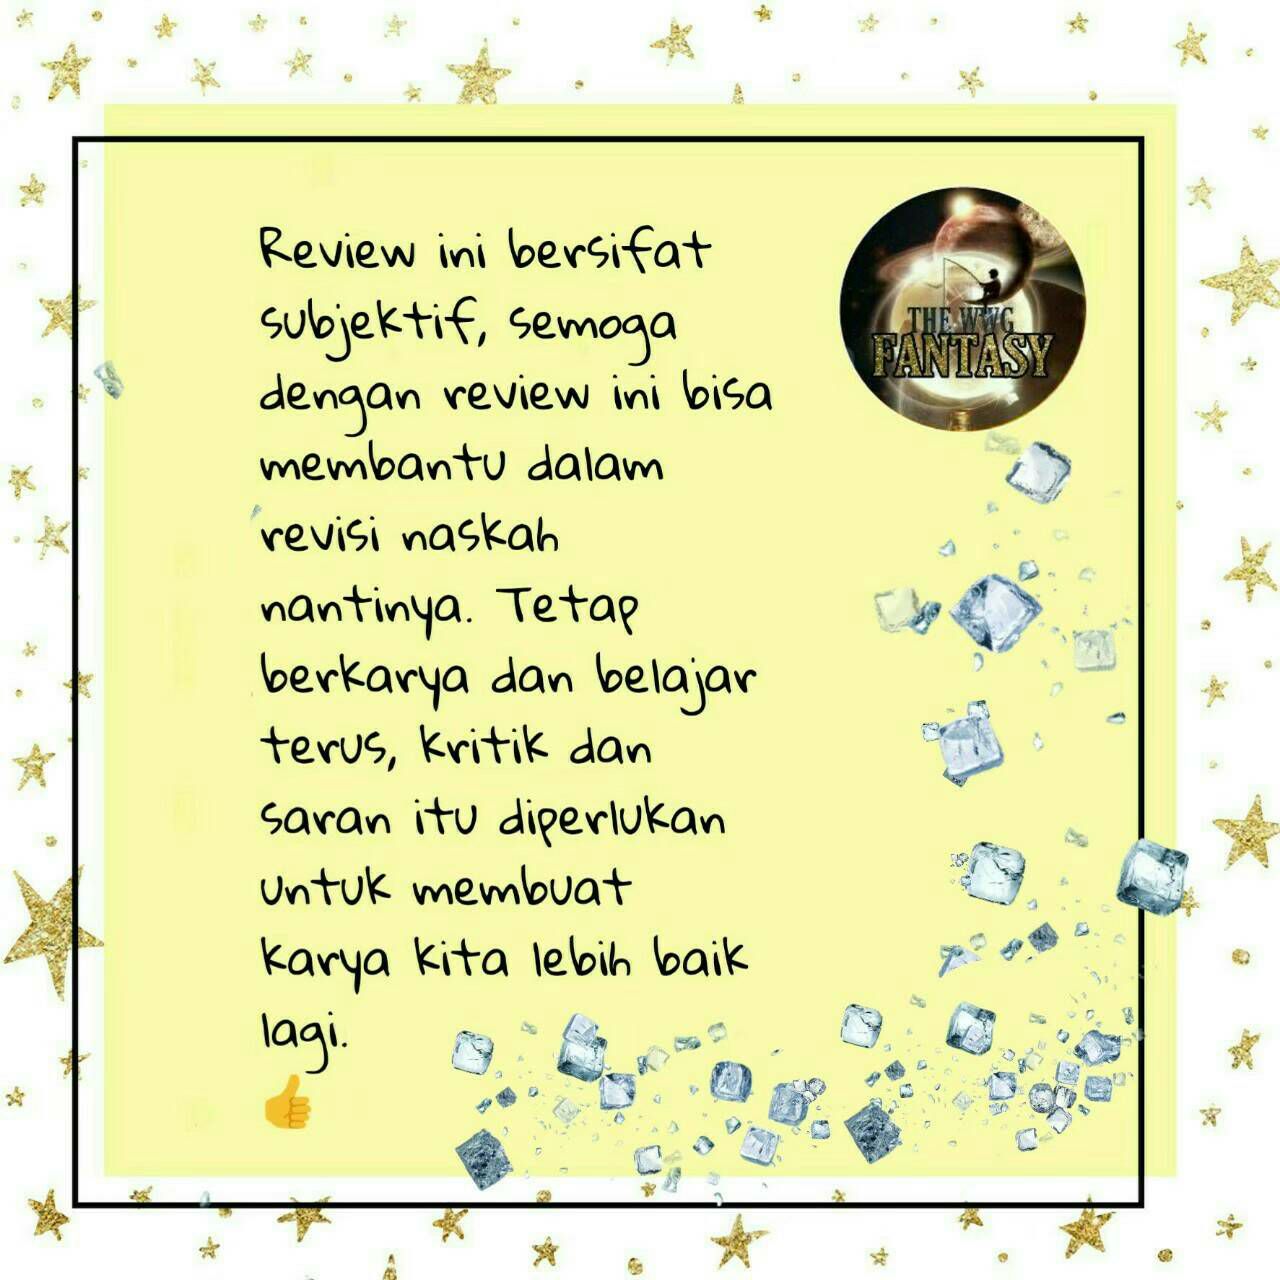 Review ini bersifat
subjektif, semoga
dengan review ini bisa
membantu dalam
revisi naskah
nantinya. Tetap
berkarya dan belajar
terus, kritik dan
saran itu diperlukan
untuk membuat
karya kita lebih baik
lagi.
👍
THE WWG
FANTASY